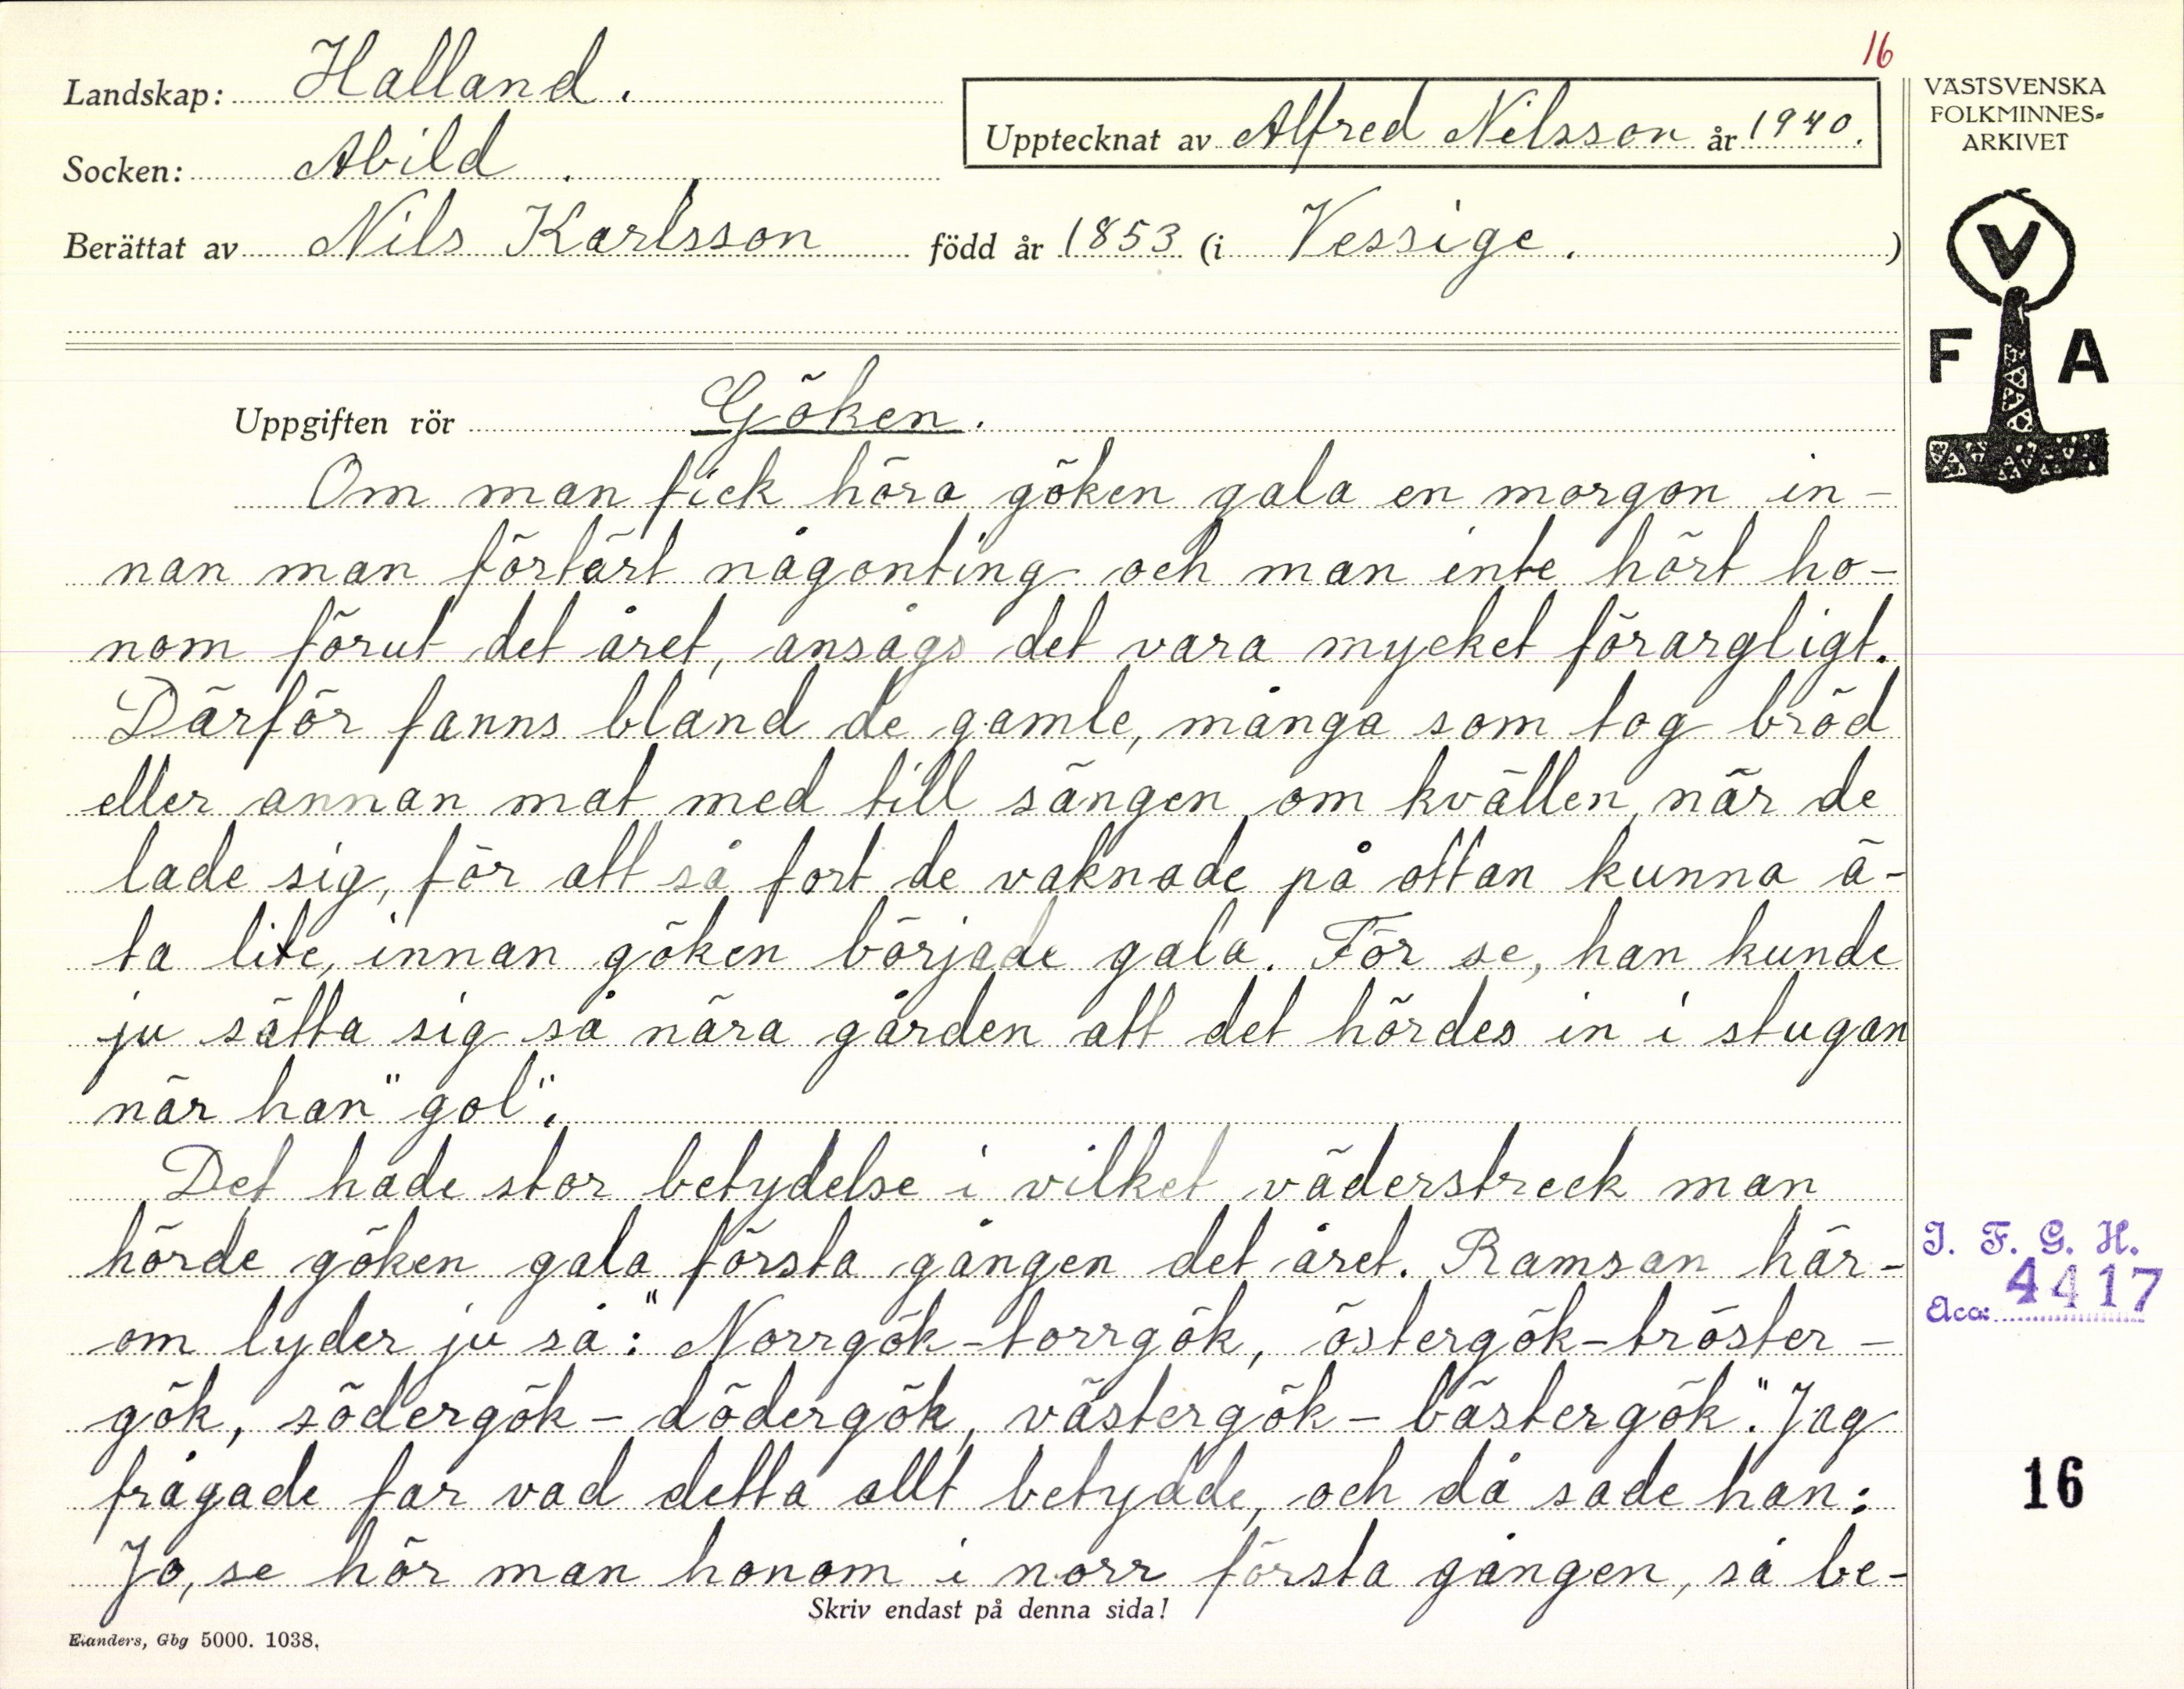 16
Landskap: Halland.
Socken: Abild.
Upptecknat av Alfred Nilsson år 1940.
Berättat av Nils Karlsson född år 1853 (i Vessige.)
VÄSTSVENSKA
FOLKMINNES-
ARKIVET
V
F A
Uppgiften rör Göken.
Om man fick höra göken gala en morgon in-
nan man förtärt någonting och man inte hört ho-
nom förut det året, ansågs det vara mycket förargligt.
Därför fanns bland de gamle, många som tog bröd
eller annan mat med till sängen om kvällen, när de
lade sig, för att så fort de vaknade på ottan kunna ä-
ta lite, innan göken började gala. För se, han kunde
ju sätta sig så nära gården att det hördes in i stugan
när han "gol".
Det hade stor betydelse i vilket väderstreck man
hörde göken gala första gången det året. Ramsan här-
om lyder ju så: "Norrgök-torrgök, östergök-tröster-
gök, södergök-dödergök, västergök-bästergök." Jag
frågade far vad detta allt betydde, och då sade han:
Jo, se hör man honom i norr första gången, så be-
Skriv endast på denna sida!
Elanders, Gbg 5000. 1038.
I. F. G. H.
Acc: 4417
16